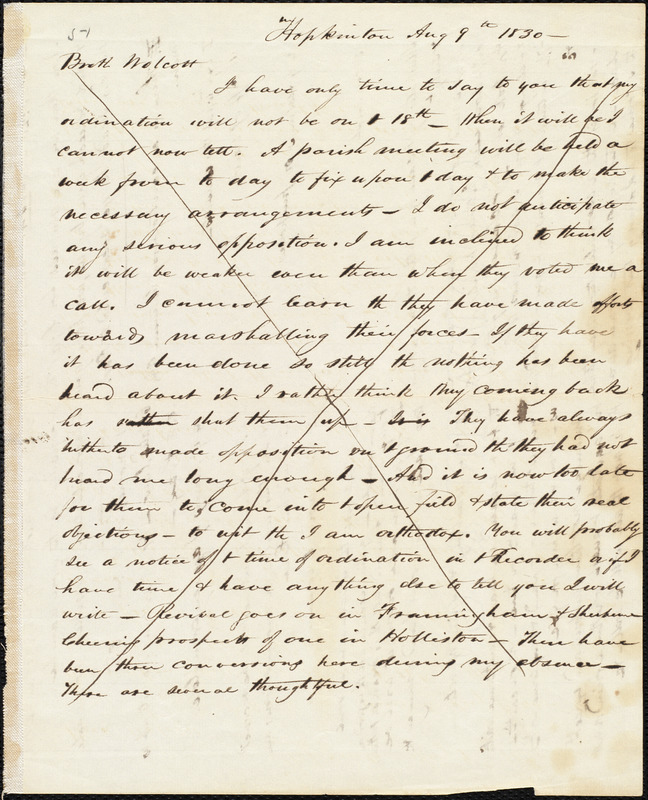 Hopkinton Aug 9th 1830—
Broth Wolcott
I have only time to say to you that my
ordination will not be on t 18th — When it will be I
cannot now tell. A parish meeting will be held a
week from to day to fix upon t day & to make the
necessary arrangements — I do not anticipate
any serious opposition. I am inclined to think
it will be weaker even than when they voted me a
call. I cannot learn th they have made efforts
towards marshalling their forces — If they have
it has been done so still th nothing has been
heard about it. I rather think my coming back
has shut them up — They have always
hitherto made opposition on t ground th they had not
heard me long enough — And it is now too late
for them to come into t open field & state their real
objections — to wit th I am orthodox. You will probably
see a notice of t time of ordination in t Recorder if I
have time & have anything else to tell you I will
write — Revival goes on in Framingham &
Cheering prospects of one in Holliston — There have
been three conversions here during my absence —
There are several thoughtful.